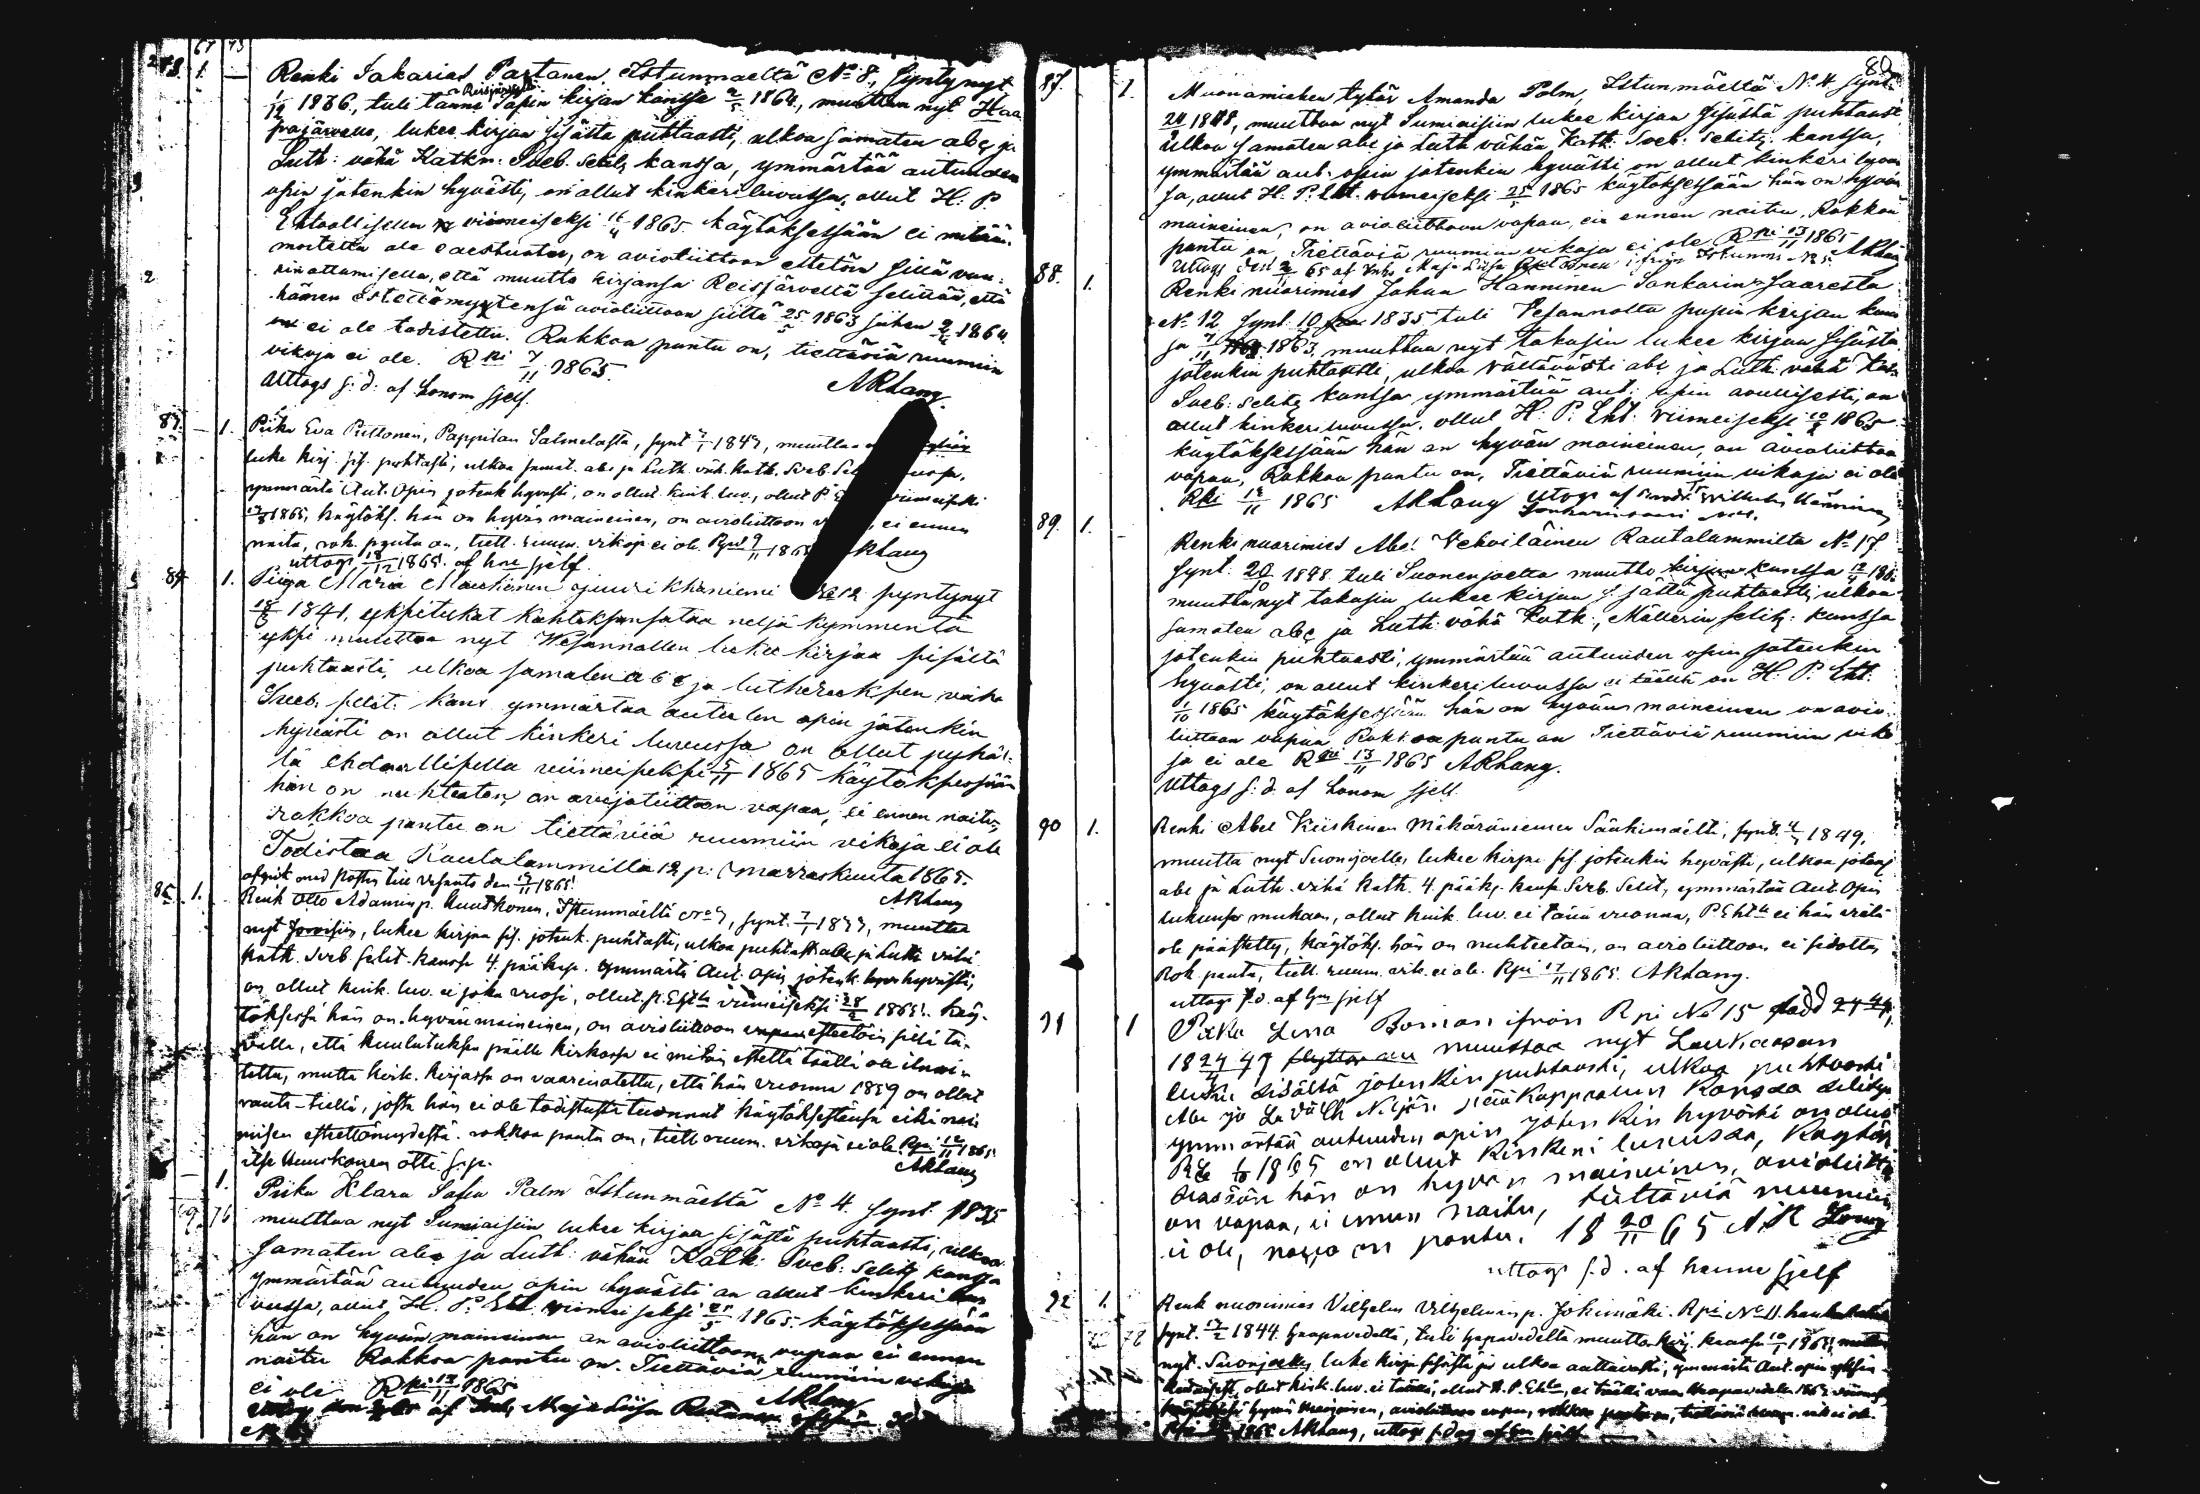 67 73
Renki Sakarias Partanen. Istunmaeltä No 8, syntynyt
Reisjärveltä
1/12 1836, tuli tänne Papin kirjan kanssa 2/5 1864, muuttaa nyt Haa
pajärvelle, lukee kirjan sisältä puhtaasti, ulkoa samaten abc ja
Luth: vähä Katkm: Sveb. selit; kanssa, ymmärtää autuuden
opin jotenkin hyvästi, on ollut kinkeriluvussa, ollut H: P:
Ehtoollisella viimeiseksi 16/4 1865. käytöksessään ei mitään
moitetta ole, on avioliittoon esteetön sillä vaa-
rinottamisella, että muutto kirjansa Reisjärveltä selittää, että
hänen esteettömyytensä avioliittoon siitä 25/5 1863 siihen 2/5 1864
ei ole todistettu. Rokkoa pantu on, tiettäviä ruumiin
vikoja ei ole. Rpi 7/11 1865.
AKLang.
Uttogs s: d: af honom sjelf.
83. 1. Piika Eva Puttonen, Pappilan Salmelasta, synt 1847, muuttaa
luke kirj. sis. puhtasti, ulkoa samat. abc ja Luth. väh. Katk. Sveb. Sel
ymmärtä Aut. Opin jotenk hyvästi, on ollut kink. luv., ollut P. viimeiseksi
1865, käytöks. hän on hyvän maineinen, on avioliittoon ei ennen
naitu, rok. pantu on, tiett. ruum. vikoja ei ole. Rpi 9/11 1865 AKLang
uttogs 18/12 1865. af hne sjelf.
84 1. Piiga Maria Manninen No 12 syntynyt
18/3 1841, yksitukat kahteksansataa neljäkymmentä
yksi muuttaa nyt Wesannollen lukee kirjaa sisältä
puhtaasti, ulkoa samaten a b c ja lutheruksen vähä
Sveb. selit. kans ymmärtää autuuden opin jotenkin
hyvästi on ollut kinkeri luvussa on ollut pyhäl-
lä ehdoollisella viimeiseksi 5/11 1865 käytöksessään
hän on nuhteeton, on avioliittoon vapaa, ei ennen naitu,
rokkoa pantu on tiettäviä ruumiin vikoja ei ole
Todistaa Rautalammilla 12 p: marraskuuta 1865.
AKLang
afgick med posten till Vesanto den 1865.
85. 1. Renk Otto Adaminp. Huuskonen, Istunmäeltä No 7, synt. 1837, muuttaa
nyt, lukee kirjaa sis. jotenk. puhtasti, ulkoa puhtasti abc ja Luth vähä
Kath. Sveb Selit. kanssa 4. pääkap. Ymmärtä Aut. opin jotenk. hyvästi,
on ollut kink. luv. ei joka vuosi, ollut P. Ehtlla viimeiseksi 28/2 1865. käy-
töksessä hän on hyvän maineinen, on avioliittoon esteetöin sillä ta-
valla, että kuulutuksen päälle kirkossa ei mitän estettä täällä ole ilmoi-
tettu, mutta kirk. kirjassa on vaarinotettu, että hän vuonna 1859 on ollut
rauta-tiellä, josta hän ei ole todistusta tuonnut käytöksestensä eikä nai
misen esteettömyydestä. rokkoa pantu on, tiett ruum. vikoja ei ole. Rpi 1865
AKLang
itse Huuskonen otti s.p.
1.
69 76
Piika Klara Sofia Palm Istunmäeltä No 4. synt. 1835
muuttaa nyt Sumiaisiin lukee kirjaa sisästä puhtaasti, ulkoa
samaten abc ja Luth: vähän Katk: Sveb: selitz kanssa
ymmärtää autuuden opin hyvästi on ollut kinkeri lu
vussa, ollut H. P. Eht. viimeiseksi 25/5 1865. käytöksessään
hän on hyvän maineinen on avioliittoon vapaa ei ennen
naitu Rokkoa pantu on. Tiettäviä ruumiin vikoja
ei ole Rpi 13/11 1865
AKLang
af Maja Liisa
80
87. 1. Muonamiehen tytär Amanda Palm, Istunmäeltä No 4 synt:
1848, muuttaa nyt Sumiaisiin lukee kirjan sisästä puhtaast
ulkoa samaten abc ja Luth vähän Katk: Sveb: selitz: kanssa,
ymmärtää aut: opin jotenkin hyvästi on ollut kinkeri luvus
sa, ollut H. P. Eht. viimeiseksi 25/5 1865 käytöksessään hän on hyvän
maineinen, on avioliittoon vapaa, eie ennen naitu. Rokkoa
pantu on Tiettäviä ruumiin vikoja ei ole Rpi 13/11 1865
AKLang
Uttogs den 65 af Maja Liisa ifrån Istunm No 5.
88. 1. Renki nuorimies Johan Hänninen Sonkarin Saaresta
No 12 synt. 10 1835 tuli Vesannolta papin kirjan kans
sa 7/11 1863, muuttaa nyt takasin lukee kirjaa sisästä
jotenkin puhtaasti, ulkoa vältävästi abc ja Luth: vähä Kat:
Sveb: selitz kanssa ymmärtää aut: opin avullisesti, on
ollut kinkeriluvussa, ollut H: P: Eht: viimeiseksi 1865
käytöksessään hän on hyvän maineinen, on avioliittoon
vapaa, Rokkoa pantu on, Tiettäviä ruumiin vikoja ei ole
Rpi 13/11 1865 AKLang Utogs af Wilhelm Hänninen
Sonkarinsaari
89. 1. Renki nuorimies Abel Vehviläinen Rautalammilta No 17.
synt: 20/10 1848 tuli Suonenjoelta muutto kirjan kanssa
muuttaa nyt takasin lukee kirjaa sisältä puhtaasti, ulkoa
samaten abc ja Luth: vähä Katk:, Möllerin selitz: kanssa
jotenkin puhtaasti, ymmärtää autuuden opin jotenkin
hyvästi, on ollut kinkeriluvussa ei täällä on H: P: Eht:
1/10 1865 käytöksessään hän on hyvän maineinen on avio-
liittoon vapaa Rokkoa pantu on Tiettäviä ruumiin viko
ja ei ole Rpi 13/11 1865 AKLang.
Uttogs s: d: af honom sjelf.
90 1. Renki Abel Kiiskinen Mäkäräniemen Sänkimäeltä, synt. 1849,
muutta nyt Suonjoelle, lukee kirjaa sis jotenkin hyvästi, ulkoa jotenk
abc ja Luth. vähä kath. 4. pääk. kansa Sveb. Selit, ymmärtää Aut. Opin
lukunsa mukaan, ollut kink. luv. ei tänä vuonna, P. Ehtlle ei hän vielä
ole päästetty, käytöks. hän on nuhteetoin, on avioliittoon ei sidottu,
Rok. pantu, tiett. ruum. vik. ei ole. Rpi 17/11 1865. AKLang.
uttogs s.d. af hm sjelf
91 1 Piika Lena Boman ifrån Rpi No 15 född
18 24/4 47 muuttaa nyt Laukaaseen
lukee sisältä jotenkin puhtaasti, ulkoa puhtaasti
Abc ja L. väh Neljän pääkappaleen kanssa selitys
ymmärtää autuuden opin jotenkin hyvästi on ollut
RE 1/10 1865 on ollut kinkeri luvussa, käytök
sessään hän on hyvän maineinen, avioliitto
on vapaa, ei ennen naitu, tiettäviä ruumiin
ei ole, rokko on pantu. 18 20/11 65 A.K Lang
uttogs s.d. af henne sjelf
92 1. Renk nuorimies Vilhelm Vilhelminp. Jokimäki. Rpi No 11.
72 78
synt. 17/2 1844. Haapavedeltä, tuli Hapavedeltä muutto kirj. kanssa 1865,
nyt. Suonjoelle, luke kirja sisästä ja ulkoa auttavasti, ymmärtä Aut. opin
ollut kink. luv. ei täällä, ollut H. P. Ehtlla, ei täällä vaan Haapavedellä 1863
hyvän maineinen, avioliittoon vapaa, rokkoa pantu on, tiettäviä ruum. vik ei ole.
Rpi 1865 AKLang, uttogs s. dag af hm sjelf